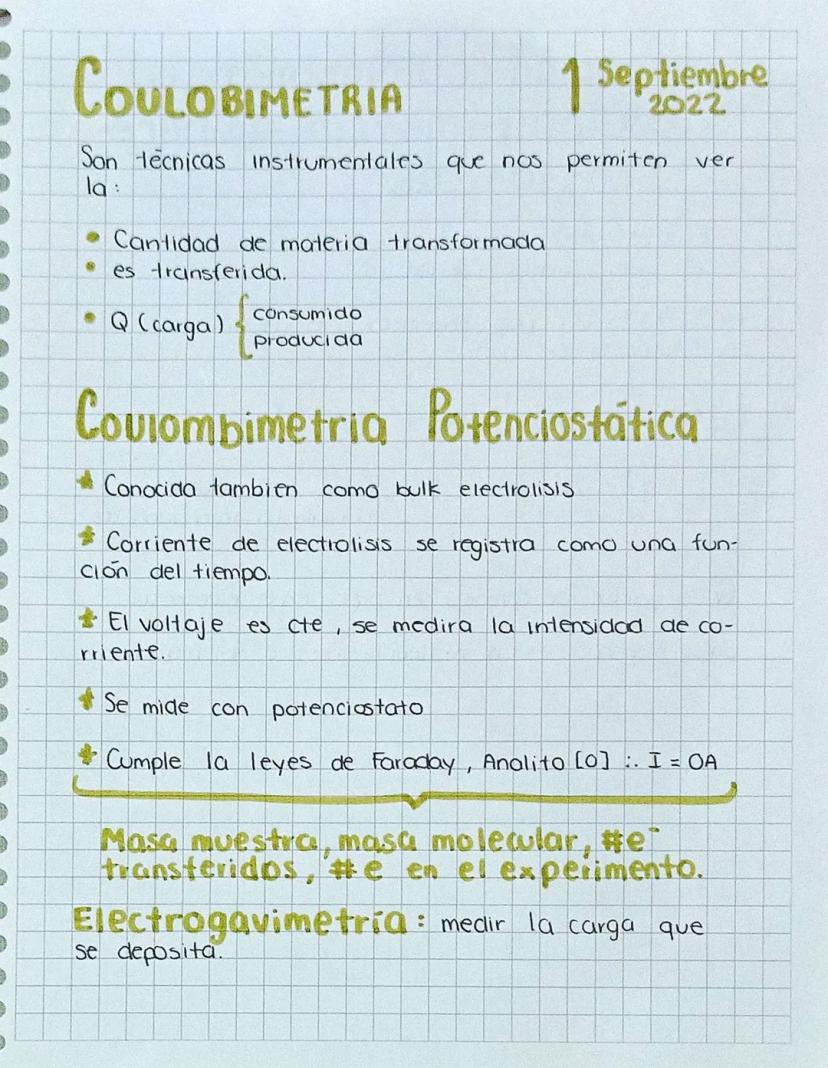 COULOBIMETRIA
1 Septiembre
2022
Son técnicas instrumentales que nos permiten ver
la:
• Cantidad de materia transformada
• es transferida.
• Q (carga) { consumido
producida
Coulombimetria Potenciostática
* Conocida tambien como bulk electrolisis
* Corriente de electrolisis se registra como una fun-
ción del tiempo.
* El voltaje es cte, se medira la intensidad de co-
rriente.
* Se mide con potenciostato
* Cumple la leyes de Faraday, Analito [0] ∴ I = 0A
Masa muestra, masa molecular, #e⁻
transferidos, #e en el experimento.
Electrogavimetría: medir la carga que
se deposita.